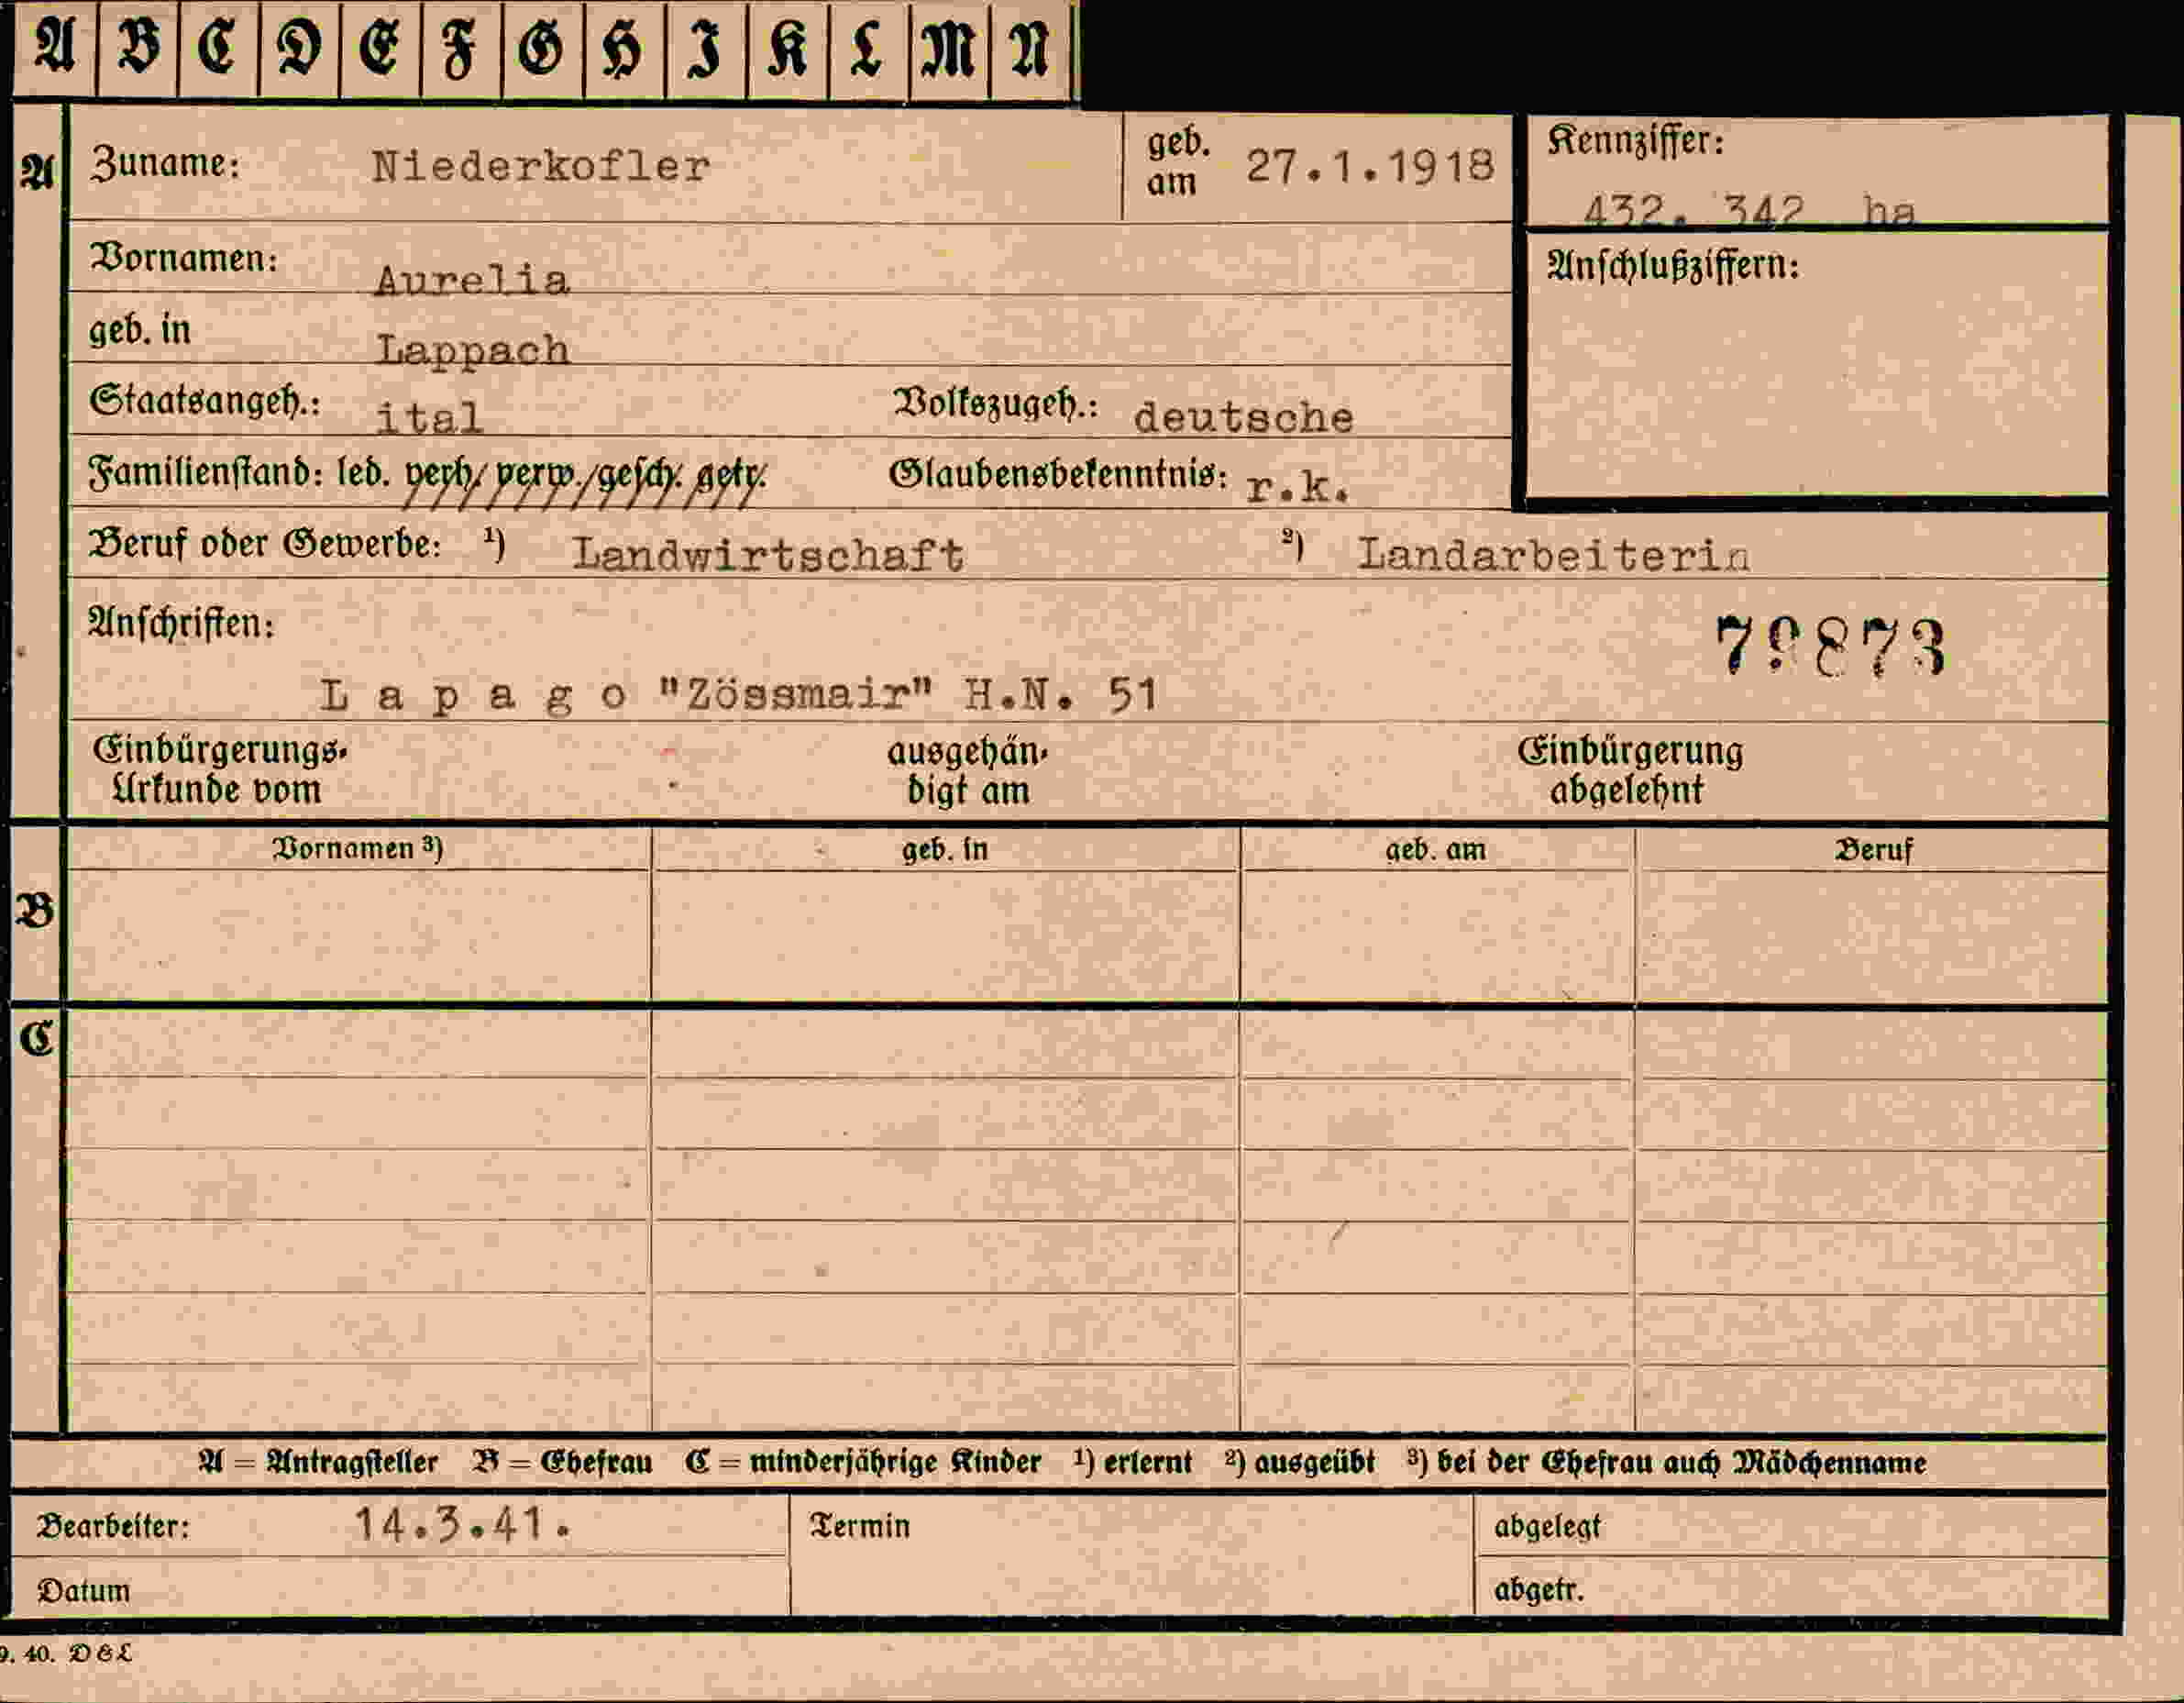 A B C D E F G H I K L M N
A Zuname: Niederkofler geb. am 27.1.1918 Kennziffer:
432. 342 ha
Vornamen: Aurelia Anschlußziffern:
geb. in Lappach
Staatsangeh.: ital Volkszugeh.: deutsche
Familienstand: led. verh. verw. gesch. getr. Glaubensbekenntnis: r.k.
Beruf oder Gewerbe: ¹) Landwirtschaft ²) Landarbeiterin
Anschriften:
79873
L a p a g o "Zössmair" H.N. 51
Einbürgerungs- ausgehän- Einbürgerung
Urkunde vom digt am abgelehnt
Vornamen ³) geb. in geb. am Beruf
B
C
A = Antragsteller B = Ehefrau C = minderjährige Kinder ¹) erlernt ²) ausgeübt ³) bei der Ehefrau auch Mädchenname
Bearbeiter: 14.3.41. Termin abgelegt
Datum abgetr.
9. 40. D & L